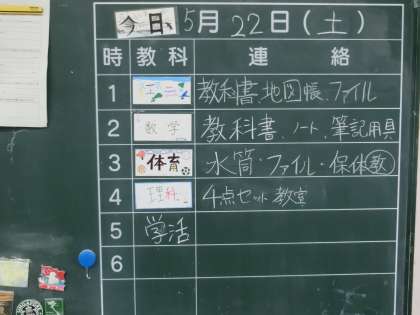 今日 5月22日(土)
時 教科 連絡
1 教科書、地図帳、ファイル
2 数学 教科書、ノート、筆記用具
3 体育 水筒・ファイル・保体教
4 理科 4点セット 教室
5 学活
6